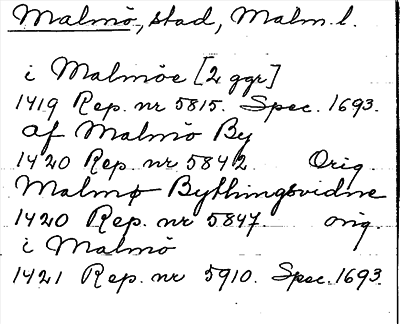 Malmö, stad, Malm. l.
i Malmöe [2 ggr]
1419 Rep. nr 5815. Spec. 1693.
af Malmö By
1420 Rep. nr 5842. Orig.
Malmø Bythingsvidne
1420 Rep. nr 5847. orig.
i Malmö
1421 Rep. nr 5910. Spec. 1693.